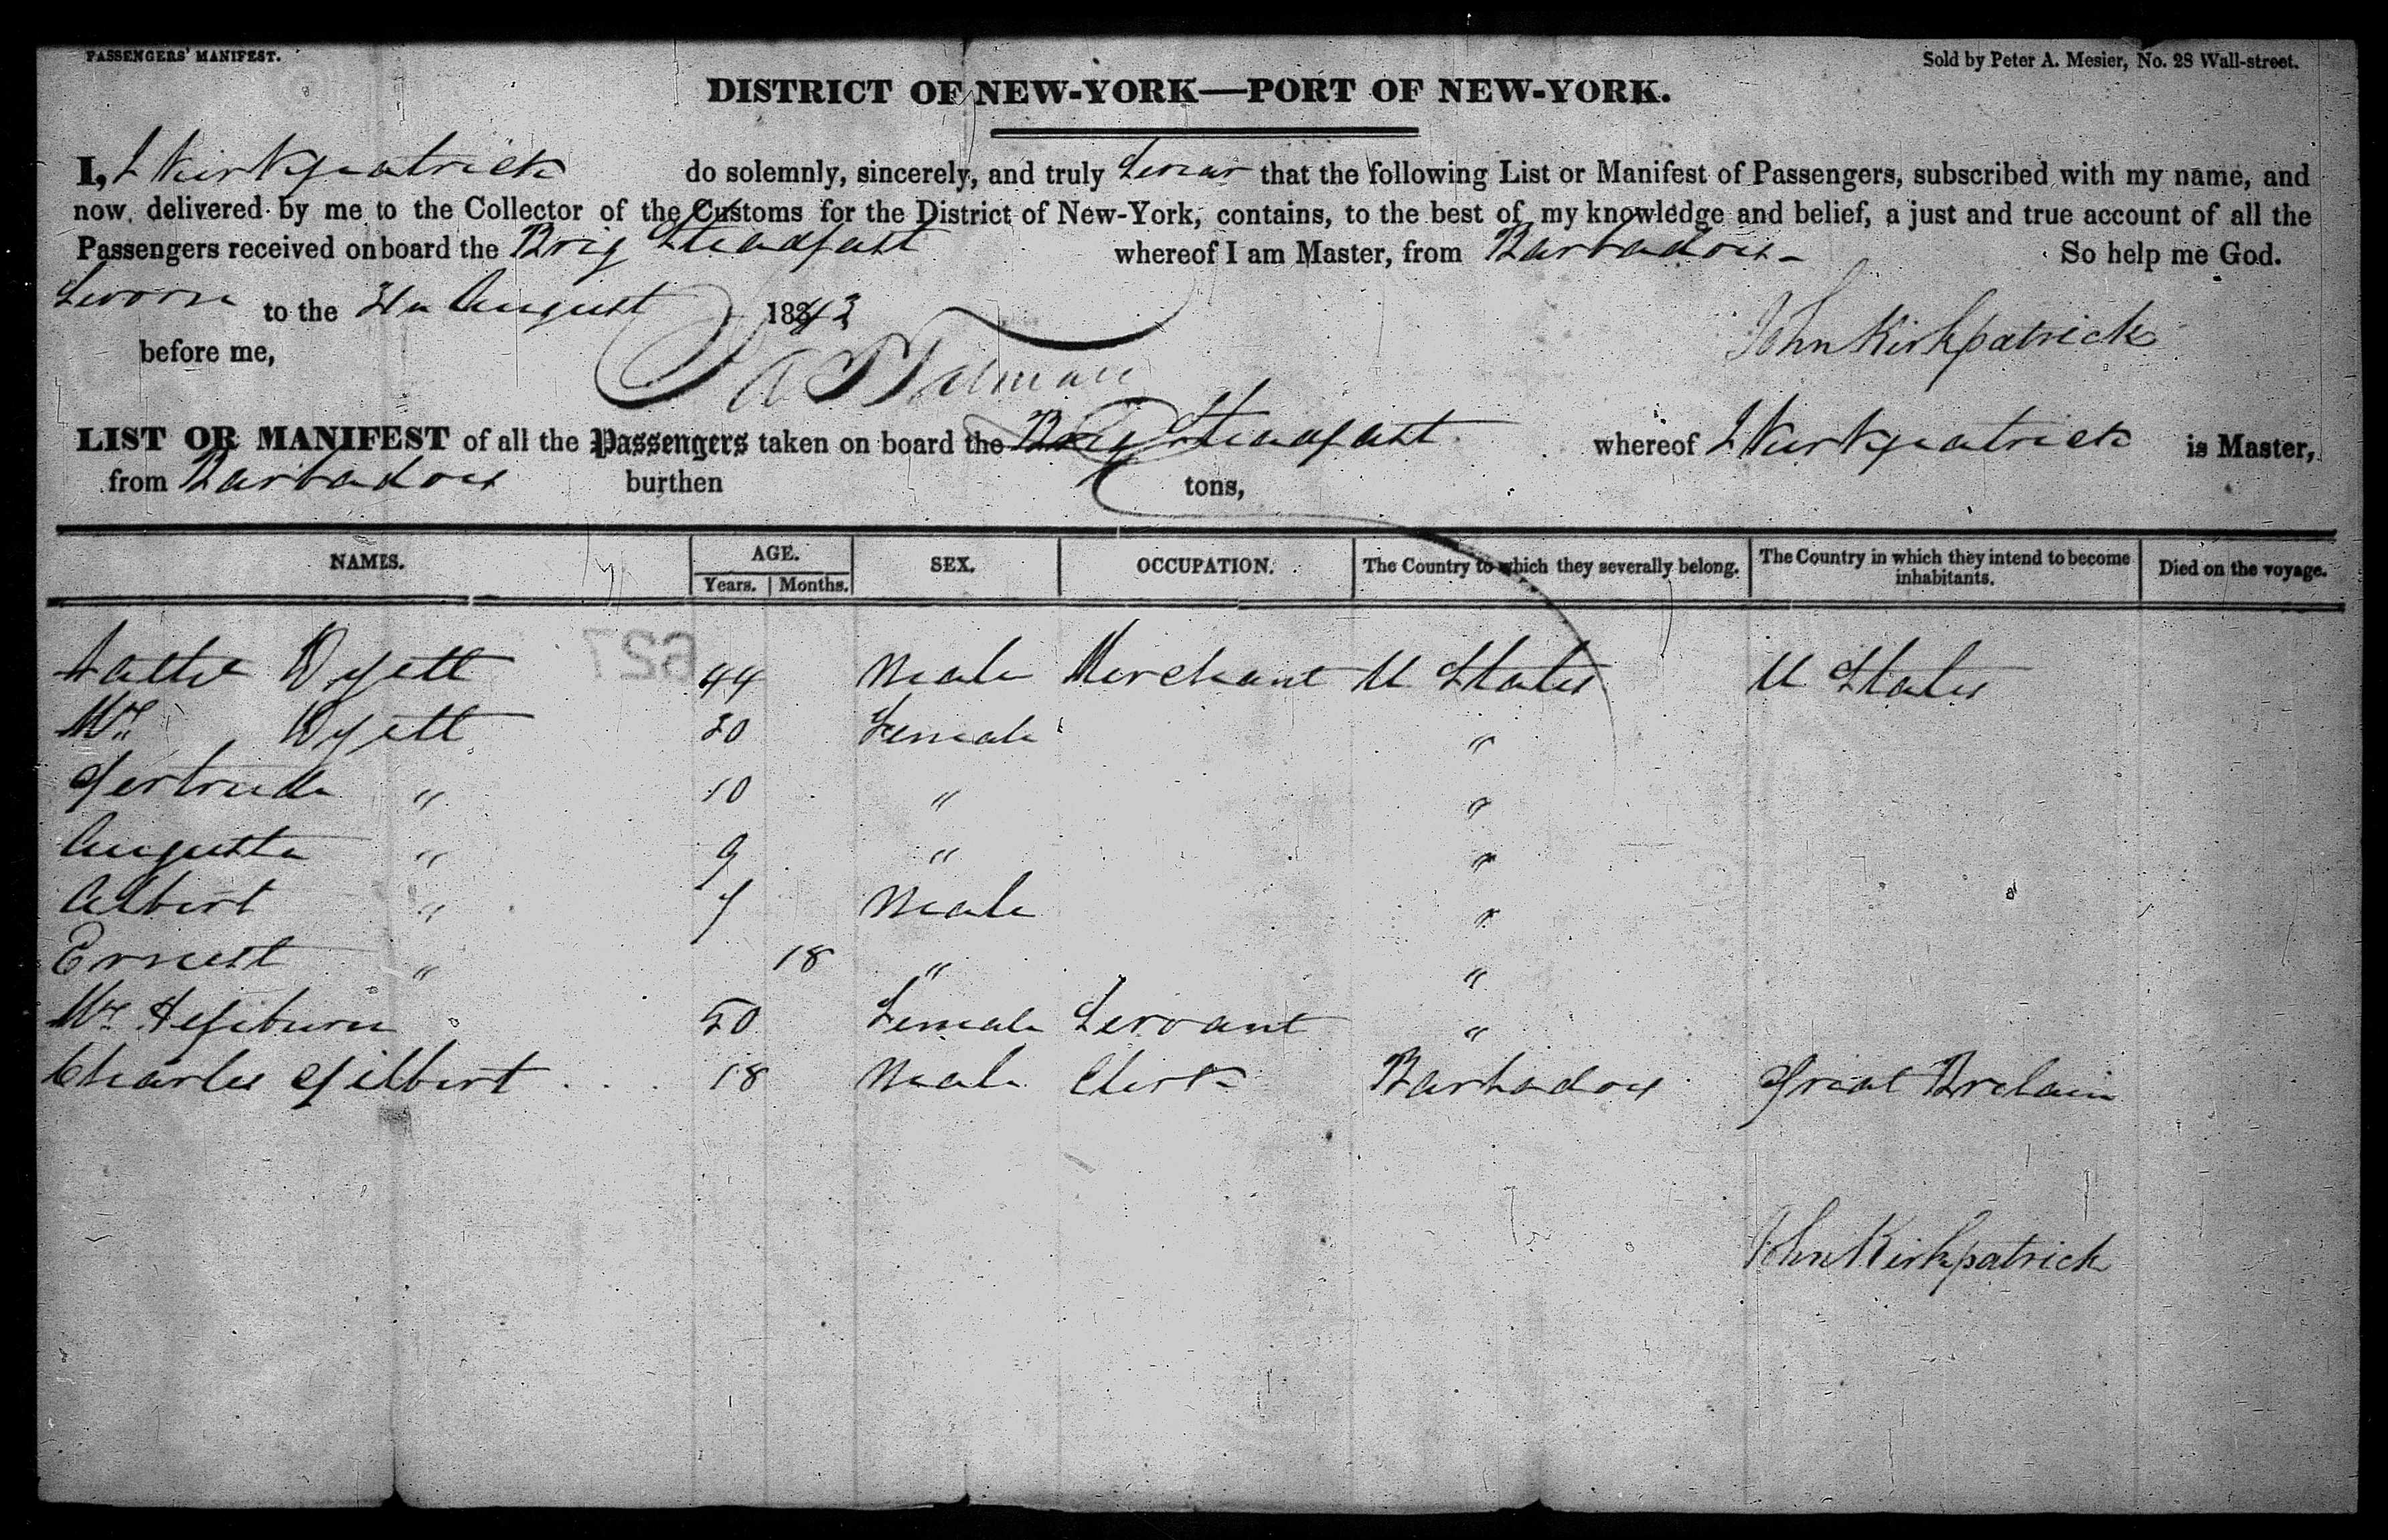 PASSENGERS' MANIFEST.
Sold by Peter A. Mesier, No. 28 Wall-street.
DISTRICT OF NEW-YORK—PORT OF NEW-YORK.
I, J Kirkpatrick do solemnly, sincerely, and truly Swear that the following List or Manifest of Passengers, subscribed with my name, and
now delivered by me to the Collector of the Customs for the District of New-York, contains, to the best of my knowledge and belief, a just and true account of all the
Passengers received on board the Brig Steadfast whereof I am Master, from Barbadoes So help me God.
Sworn to the August 1843
John Kirkpatrick
before me,
LIST OR MANIFEST of all the Passengers taken on board the Brig Steadfast whereof J Kirkpatrick is Master,
from Barbadoes burthen tons,
NAMES. AGE. SEX. OCCUPATION. The Country to which they severally belong. The Country in which they intend to become inhabitants. Died on the voyage.
Years. Months.
Dyett 44 Male Merchant U States U States
Mrs Dyett 30 Female "
Gertrude " 10 " "
Augusta " 9 " "
Albert " 7 Male "
Ernest " 18 " "
Mrs Hepburn 50 Female Servant "
Charles Gilbert 18 Male Clerk Barbadoes Great Britain
John Kirkpatrick